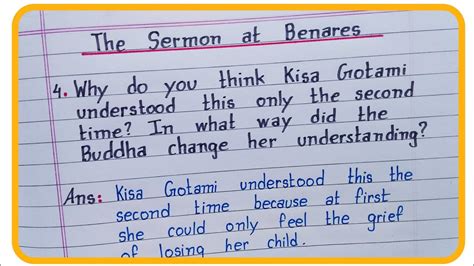 The Sermon at Benares
4. Why do you think Kisa Gotami
understood this only the second
time? In what way did the
Buddha change her understanding?
Ans: Kisa Gotami understood this the
second time because at first
she could only feel the grief
of losing her child.